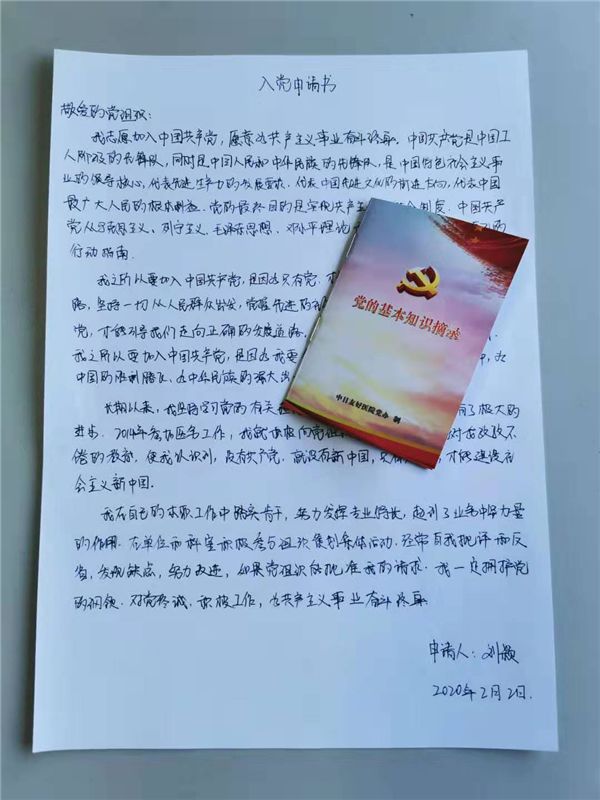 入党申请书
敬爱的党组织:
我志愿加入中国共产党,愿意为共产主义事业奋斗终身。中国共产党是中国工
人阶级的先锋队,同时是中国人民和中华民族的先锋队,是中国特色社会主义事
业的领导核心,代表先进生产力的发展要求,代表中国先进文化的前进方向,代表中国
最广大人民的根本利益。党的最终目的是实现共产主义 社会制度。中国共产
党以马克思主义、列宁主义、毛泽东思想、邓小平理论
行动指南。
我之所以要加入中国共产党,是因为只有党,
路,坚持一切从人民群众出发,掌握先进的
党,才能引导我们走向正确的发展道路,
我之所以要加入中国共产党,是因为我要 为
中国的胜利腾飞,为中华民族的强大
长期以来,我坚持学习党的有关 有了极大的
进步。2014年参加医务工作,我就积极向党组 对
的教育,使我认识到,没有共产党,就没有新中国,只 才能建设社
会主义新中国。
我在自己的本职工作中踏实肯干,努力发挥专业特长,起到了业务中坚力量
的作用。在单位和科室积极参与组织策划集体活动。经常自我批评和反
省,发现缺点,努力改进,如果党组织能批准我的请求,我一定拥护党
的纲领,对党忠诚,积极工作,为共产主义事业奋斗终身。
申请人:刘颖
2020年2月2日.
党的基本知识摘录
中日友好医院党办 制